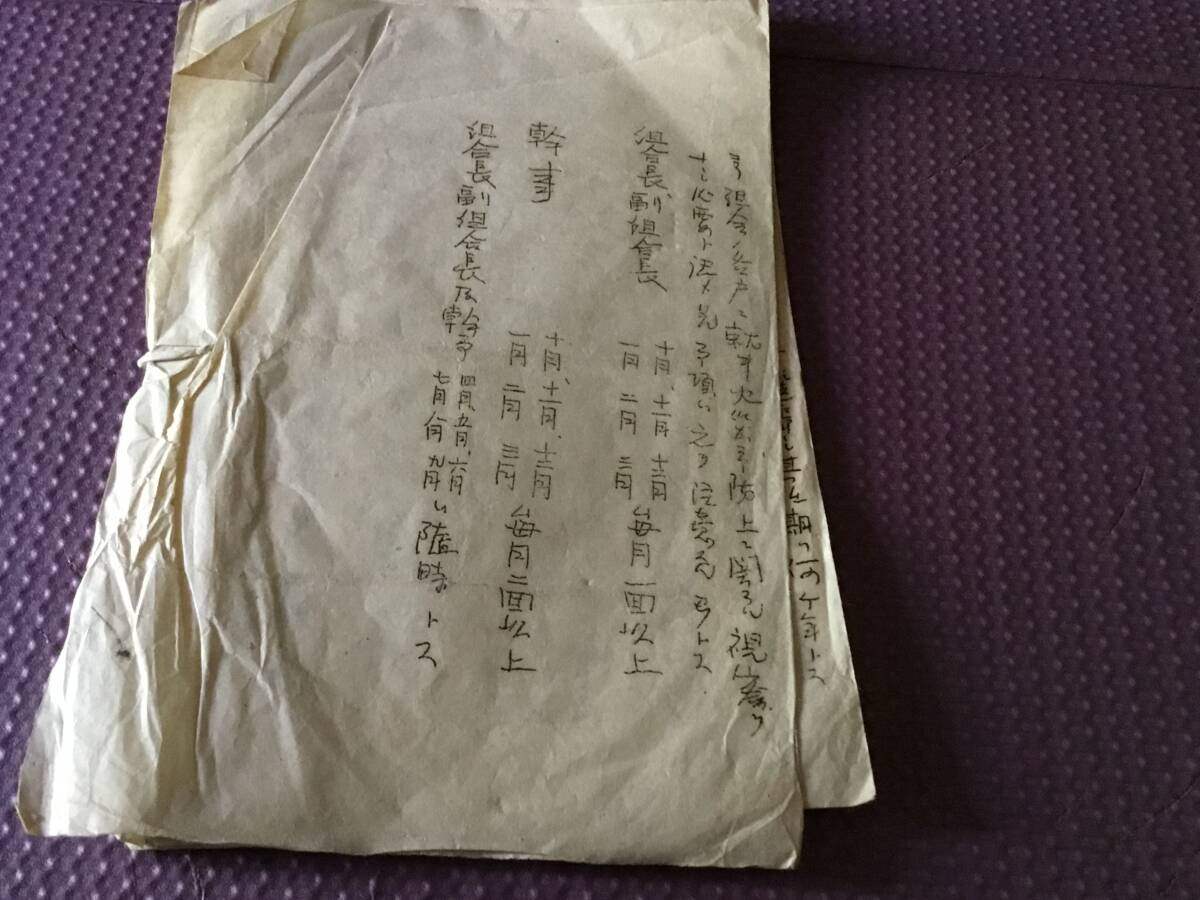 組合ノ各戸ニ就キ火災予防上ニ関スル視察ヲ
ナシ必要ト認メル事項ハ之ヲ注意スルモノトス
組合長、副組合長
十月、十一月、十二月
一月 二月 三月
毎月一回以上
幹事
十月、十一月、十二月
一月 二月 三月
毎月二回以上
組合長副組合長及幹事
四月、五月、六月
七月八月九月ハ随時トス
期ハ ケ年トス